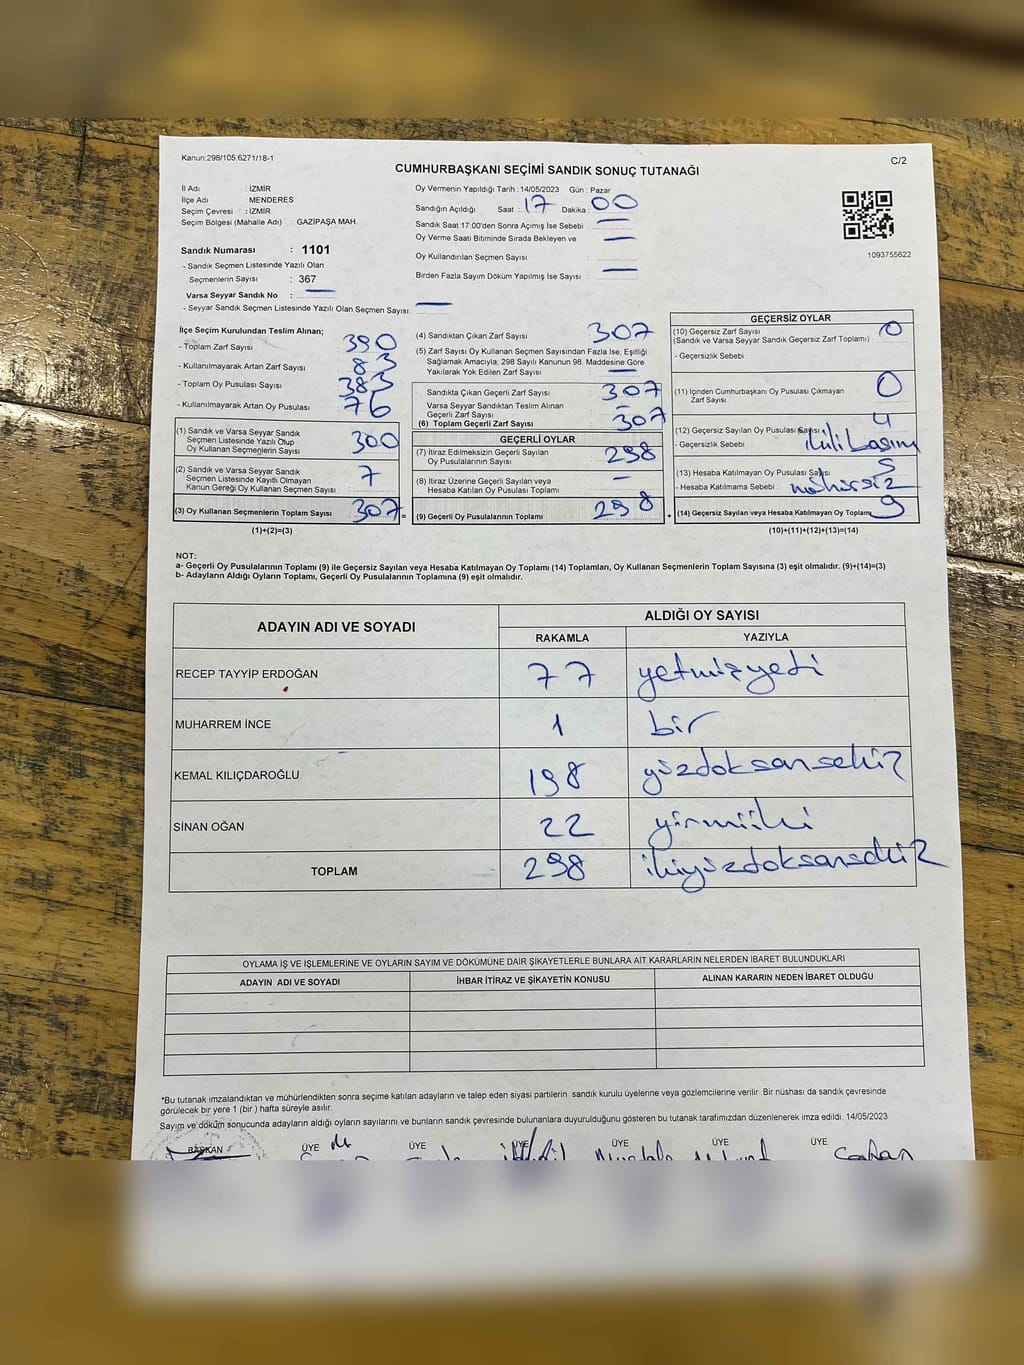 Kanun;298/105;6271/18-1
C/2
CUMHURBAŞKANI SEÇİMİ SANDIK SONUÇ TUTANAĞI
İl Adı : İZMİR
İlçe Adı : MENDERES
Seçim Çevresi : İZMİR
Seçim Bölgesi (Mahalle Adı) : GAZİPAŞA MAH.
Sandık Numarası : 1101
- Sandık Seçmen Listesinde Yazılı Olan
Seçmenlerin Sayısı : 367
Varsa Seyyar Sandık No :
- Seyyar Sandık Seçmen Listesinde Yazılı Olan Seçmen Sayısı:
Oy Vermenin Yapıldığı Tarih :14/05/2023 Gün : Pazar
Sandığın Açıldığı Saat : 17 Dakika : 00
Sandık Saat 17:00'den Sonra Açımış İse Sebebi
Oy Verme Saati Bitiminde Sırada Bekleyen ve
Oy Kullandırılan Seçmen Sayısı
Birden Fazla Sayım Döküm Yapılmış İse Sayısı
1093755622
İlçe Seçim Kurulundan Teslim Alınan;
- Toplam Zarf Sayısı 390
- Kullanılmayarak Artan Zarf Sayısı 83
- Toplam Oy Pusulası Sayısı 383
- Kullanılmayarak Artan Oy Pusulası 76
(1) Sandık ve Varsa Seyyar Sandık
Seçmen Listesinde Yazılı Olup
Oy Kullanan Seçmenlerin Sayısı 300
(2) Sandık ve Varsa Seyyar Sandık
Seçmen Listesinde Kayıtlı Olmayan
Kanun Gereği Oy Kullanan Seçmen Sayısı 7
(3) Oy Kullanan Seçmenlerin Toplam Sayısı 307 =
(1)+(2)=(3)
(4) Sandıktan Çıkan Zarf Sayısı 307
(5) Zarf Sayısı Oy Kullanan Seçmen Sayısından Fazla İse, Eşitliği
Sağlamak Amacıyla; 298 Sayılı Kanunun 98. Maddesine Göre
Yakılarak Yok Edilen Zarf Sayısı
Sandıkta Çıkan Geçerli Zarf Sayısı 307
Varsa Seyyar Sandıktan Teslim Alınan
Geçerli Zarf Sayısı
(6) Toplam Geçerli Zarf Sayısı 307
GEÇERLİ OYLAR
(7) İtiraz Edilmeksizin Geçerli Sayılan
Oy Pusulalarının Sayısı 298
(8) İtiraz Üzerine Geçerli Sayılan veya
Hesaba Katılan Oy Pusulası Toplamı
(9) Geçerli Oy Pusulalarının Toplamı 298 +
GEÇERSİZ OYLAR
(10) Geçersiz Zarf Sayısı 0
(Sandık ve Varsa Seyyar Sandık Geçersiz Zarf Toplamı)
- Geçersizlik Sebebi
(11) İçinden Cumhurbaşkanı Oy Pusulası Çıkmayan
Zarf Sayısı 0
(12) Geçersiz Sayılan Oy Pusulası Sayısı 4
- Geçersizlik Sebebi
(13) Hesaba Katılmayan Oy Pusulası Sayısı 5
- Hesaba Katılmama Sebebi mühürsüz
(14) Geçersiz Sayılan veya Hesaba Katılmayan Oy Toplamı 9
(10)+(11)+(12)+(13)=(14)
NOT:
a- Geçerli Oy Pusulalarının Toplamı (9) ile Geçersiz Sayılan veya Hesaba Katılmayan Oy Toplamı (14) Toplamları, Oy Kullanan Seçmenlerin Toplam Sayısına (3) eşit olmalıdır. (9)+(14)=(3)
b- Adayların Aldığı Oyların Toplamı, Geçerli Oy Pusulalarının Toplamına (9) eşit olmalıdır.
ADAYIN ADI VE SOYADI
ALDIĞI OY SAYISI
RAKAMLA YAZIYLA
RECEP TAYYİP ERDOĞAN 77 yetmişyeti
MUHARREM İNCE 1 bir
KEMAL KILIÇDAROĞLU 198 yüzdoksansekiz
SİNAN OĞAN 22 yirmiiki
TOPLAM 298 ikiyüzdoksansekiz
OYLAMA İŞ VE İŞLEMLERİNE VE OYLARIN SAYIM VE DÖKÜMÜNE DAİR ŞİKAYETLERLE BUNLARA AİT KARARLARIN NELERDEN İBARET BULUNDUKLARI
ADAYIN ADI VE SOYADI İHBAR İTİRAZ VE ŞİKAYETİN KONUSU ALINAN KARARIN NEDEN İBARET OLDUĞU
*Bu tutanak imzalandıktan ve mühürlendikten sonra seçime katılan adayların ve talep eden siyasi partilerin sandık kurulu üyelerine veya gözlemcilerine verilir. Bir nüshası da sandık çevresinde
görülecek bir yere 1 (bir ) hafta süreyle asılır.
Sayım ve döküm sonucunda adayların aldığı oyların sayılarını ve bunların sandık çevresinde bulunanlara duyurulduğunu gösteren bu tutanak tarafımızdan düzenlenerek imza edildi. 14/05/2023
BAŞKAN ÜYE ÜYE ÜYE ÜYE ÜYE ÜYE